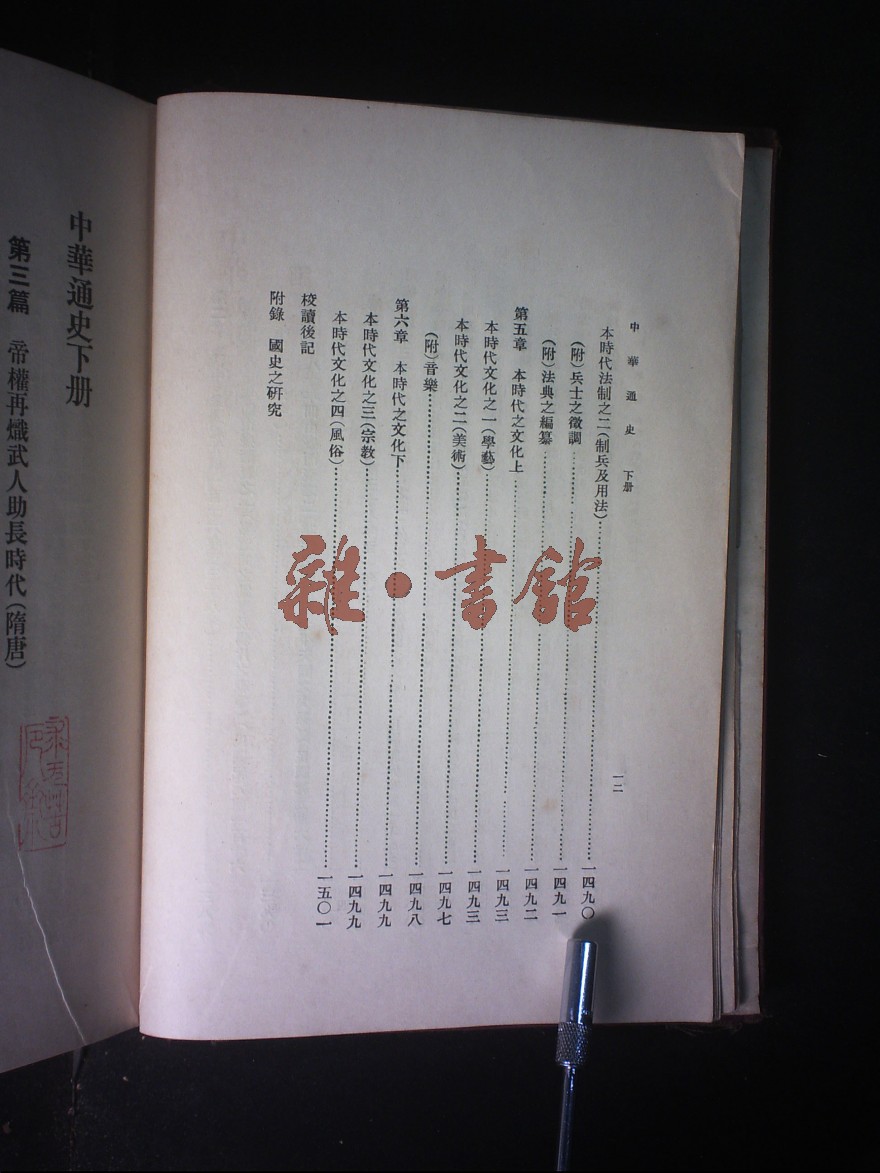 中華通史 下册
一二
本時代法制之二(制兵及用法)……一四九〇
(附)兵士之徵調……一四九一
(附)法典之編纂……一四九二
第五章 本時代之文化上……一四九三
本時代文化之一(學藝)……一四九三
本時代文化之二(美術)……一四九七
(附)音樂……一四九八
第六章 本時代之文化下……一四九九
本時代文化之三(宗教)……一四九九
本時代文化之四(風俗)……一五〇一
校讀後記
附錄 國史之研究
雜·書館
中華通史下册
第三篇 帝權再熾武人助長時代(隋唐)